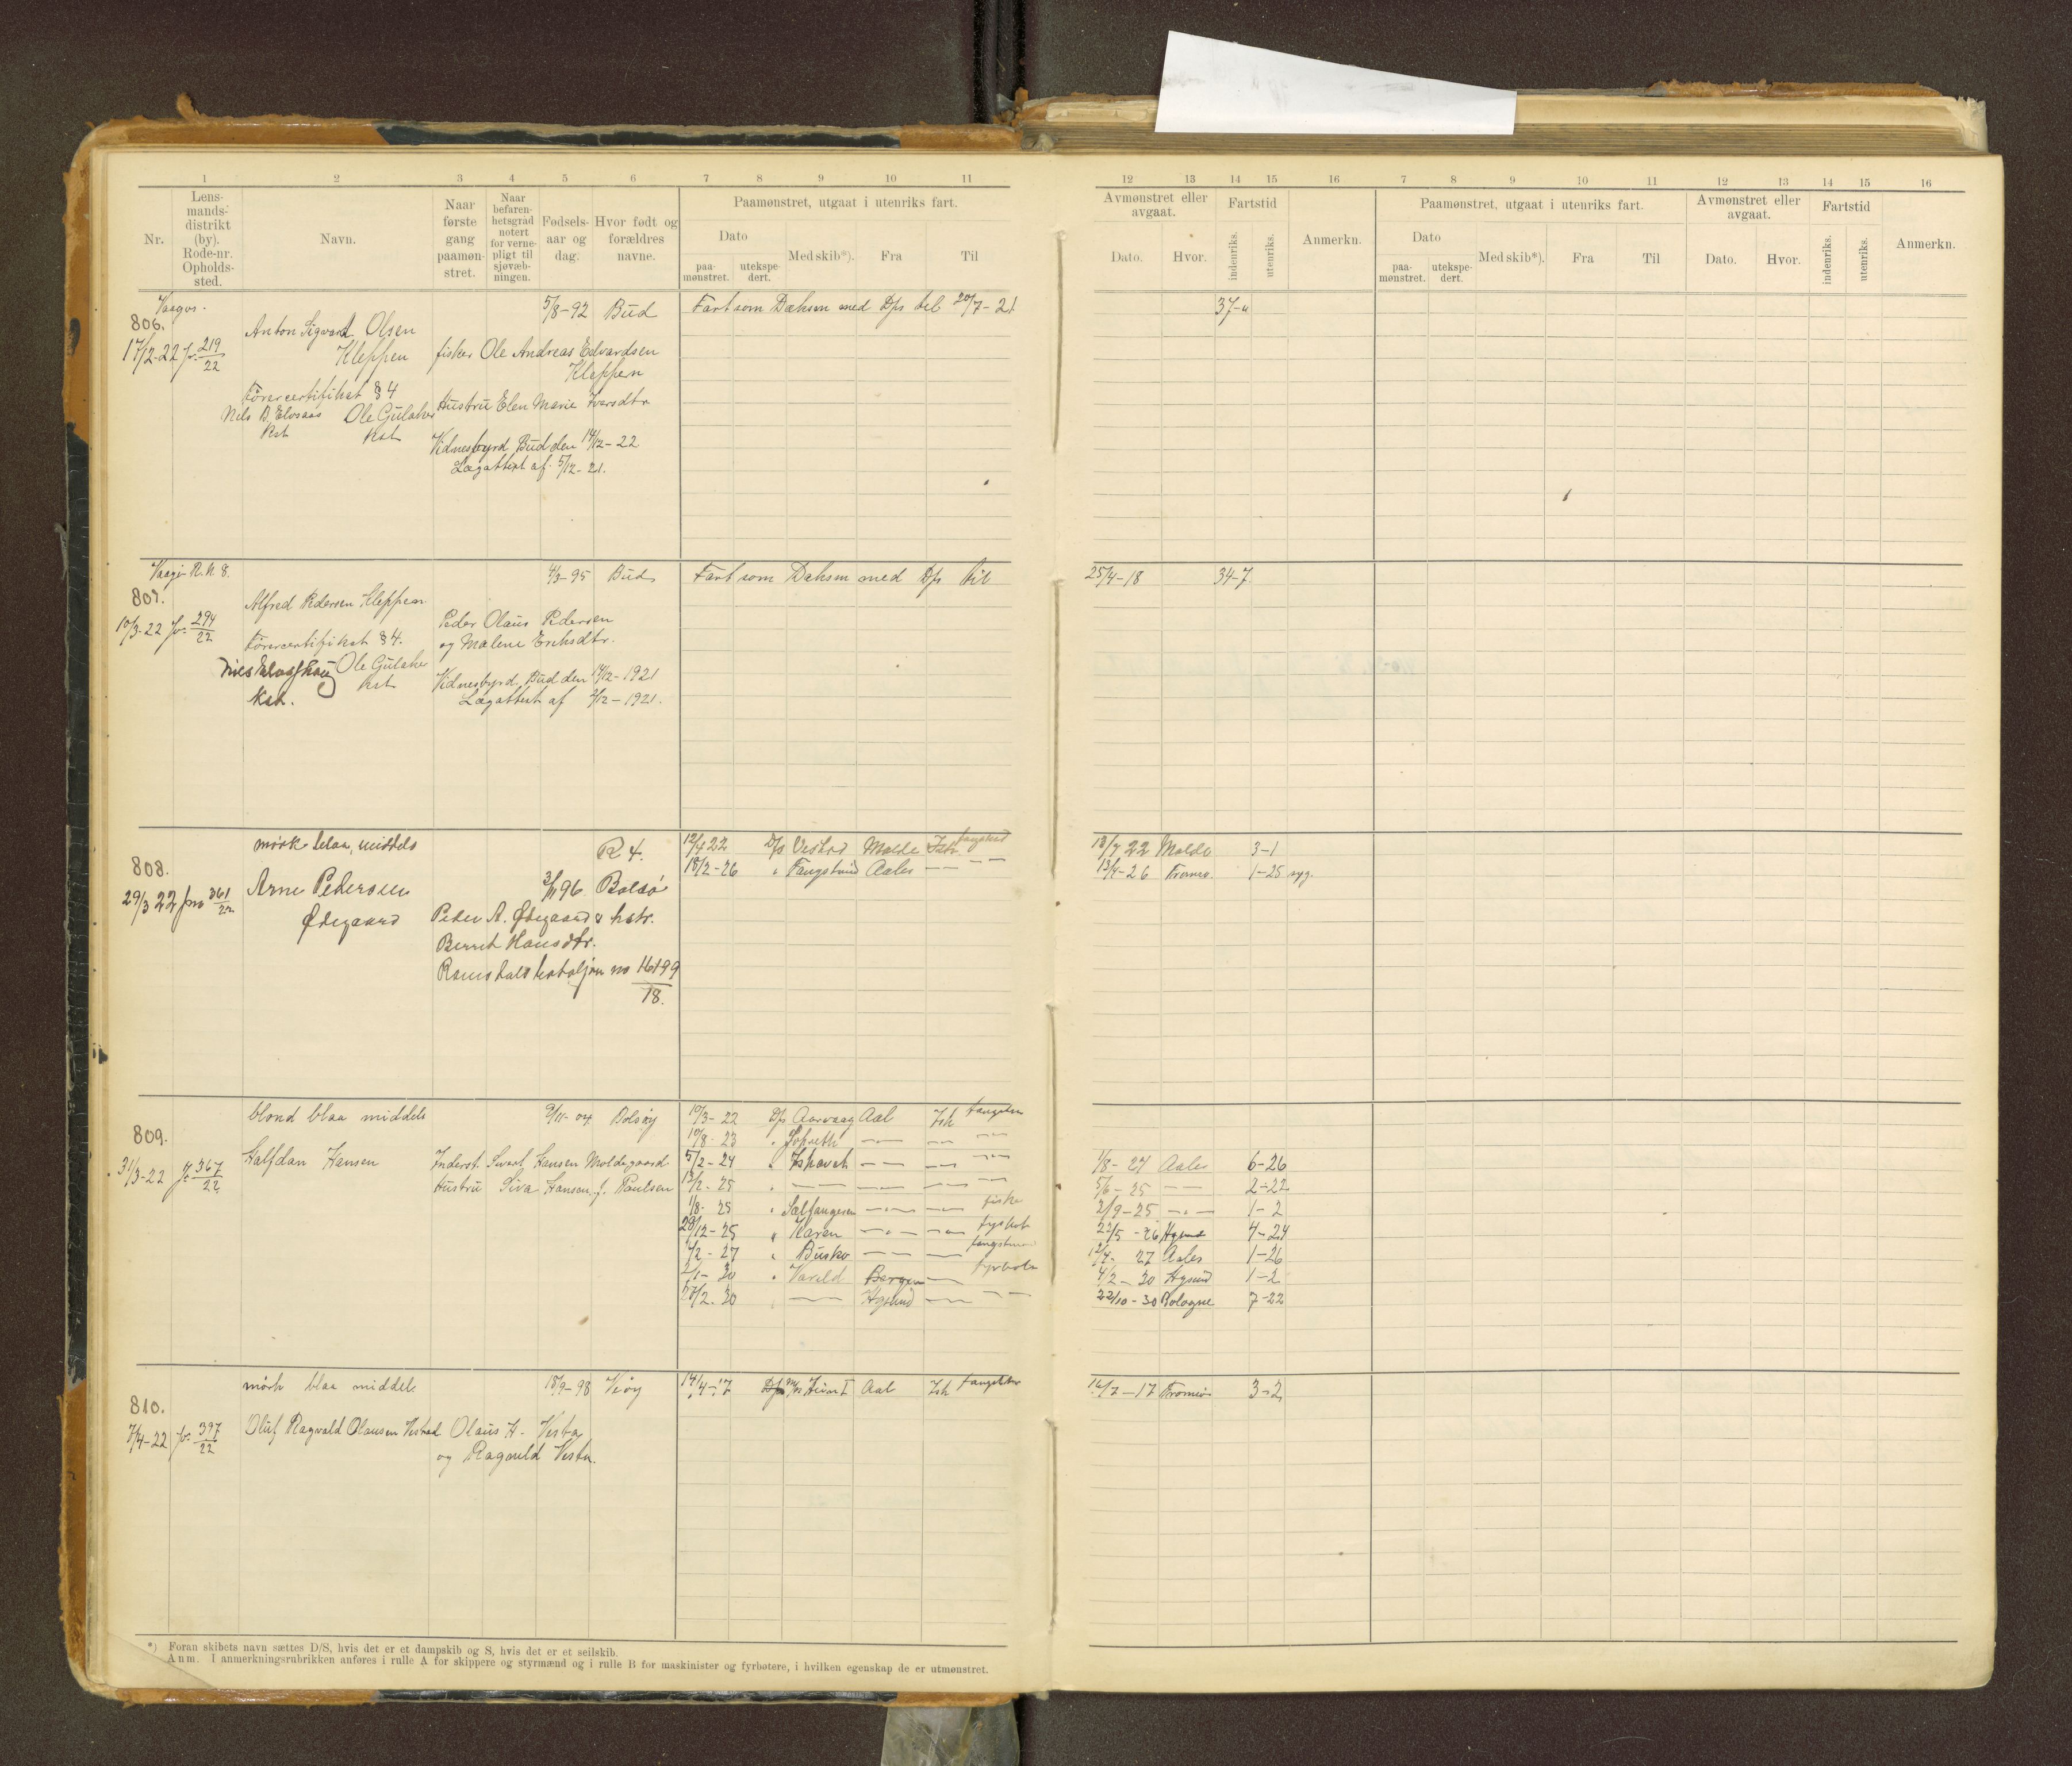 1 2 3 4 5 6 7 8 9 10 11
Nr.
Lens-
mands-
distrikt
(by).
Rode-nr.
Opholds-
sted.
Navn.
Naar
første
gang
paamøn-
stret.
Naar
befaren-
hetsgrad
notert
for verne-
pligt til
sjøvæb-
ningen.
Fødsels-
aar og
dag.
Hvor født og
forældres
navne.
Paamønstret, utgaat i utenriks fart.
Dato
paa-
mønstret.
utekspe-
dert.
Med skib*).
Fra
Til
12 13 14 15 16 7 8 9 10 11 12 13 14 15 16
Avmønstret eller
avgaat.
Dato. Hvor.
Fartstid
indenriks.
utenriks.
Anmerkn.
Paamønstret, utgaat i utenriks fart.
Dato
paa-
mønstret.
utekspe-
dert.
Med skib*).
Fra
Til
Avmønstret eller
avgaat.
Dato. Hvor.
Fartstid
indenriks.
utenriks.
Anmerkn.
806. 5/8-92 Bud Fart som Dæksm med D/s til 20/7-21 37-
17/2-22 219/22 Anton Sigvard Olsen
Kleppen fisker Ole Andreas Edvardsen
Kleppen
Førercertifikat § 4
Hustru Elen Marie Iversdtr
Ole Gulaker
Kst Kst
Vidnesbyrd Bud den 14/12-22
Lægattest af 5/12-21.
R. N 8. 4/3-95 Bud Fart som Dæksm med D/s til 25/4-18 34-7
807. Alfred Pedersen Kleppen
10/3-22 294/22 Peder Olaus Pedersen
Førercertifikat § 4. og Malene Eriksdtr.
Ole Gulaker
Kst. Kst
Vidnesbyrd Bud den 14/12-1921
Lægattest af 2/12-1921.
mørk blaa, middels R 4. 12/4 22 D/s Vestad Molde Ish. fangstmd 13/7 22 Molde 3-1
808. 18/2-26 " Fangstmd Aales — — 13/4-26 Tromsø. 1-25 syg.
29/3 22 361/22 Arne Pedersen 96 Bolsø
Ødegaard Peder A. Ødegaard & hstr.
Berret Hansdtr.
Romsdals bataljon no 16199/18.
blond blaa middels 9/11-04 Bolsøy 10/3-22 D/s Aarvaag Aal Ish fangstm
809. 10/8-23 " — — —
31/3-22 367/22 Halfdan Hansen Inderst. Sivert Hansen Moldegaard 5/2-24 " Ishavet — — — 1/8-24 Aales 6-26
Hustru Siva Hansen f. Paulsen 12/2-25 " — — — — 5/6-25 — 2-22
1/8-25 " Sælfangeren — — fiske 2/9-25 — 1-2
28/12-25 " Karen — — 22/5-26 4-24
4/2-27 " Busko — — fangstm 12/4-27 Aales 1-26
2/1-30 " Varild Bergen — fyrbøter 4/2-30 Hgsund 1-2
27/2-30 " — Hgsund — — 22/10-30 Bologne 7-22
mørk blaa middels 18/9-98 Veøy 14/4-17 Aal Ish fangstm 16/7-17 Tromsø 3-2
810.
7/4-22 397/22 Oluf Ragvald Olausen Vestad Olaus H. Vestad
og Ragnhild Vestn.
*) Foran skibets navn sættes D/S, hvis det er et dampskib og S, hvis det er et seilskib.
Anm. I anmerkningsrubrikken anføres i rulle A for skippere og styrmænd og i rulle B for maskinister og fyrbøtere, i hvilken egenskap de er utmønstret.